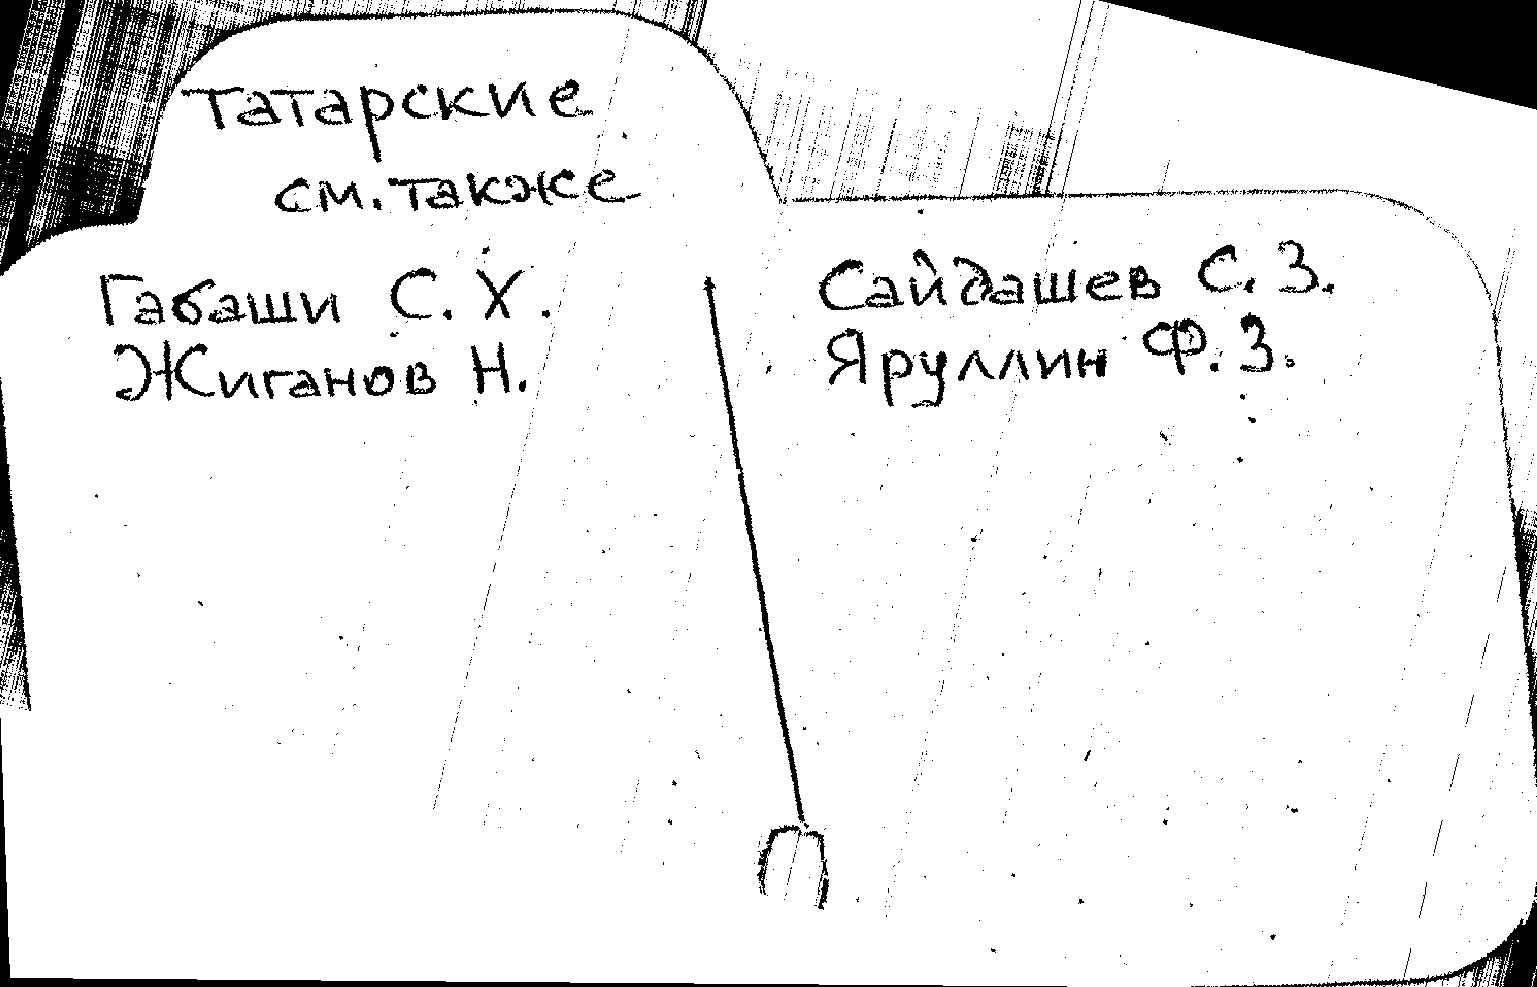 Татарские
см. также
Габаши С. Х.
Жиганов Н.
Сайдашев С. З.
Яруллин Ф. З.